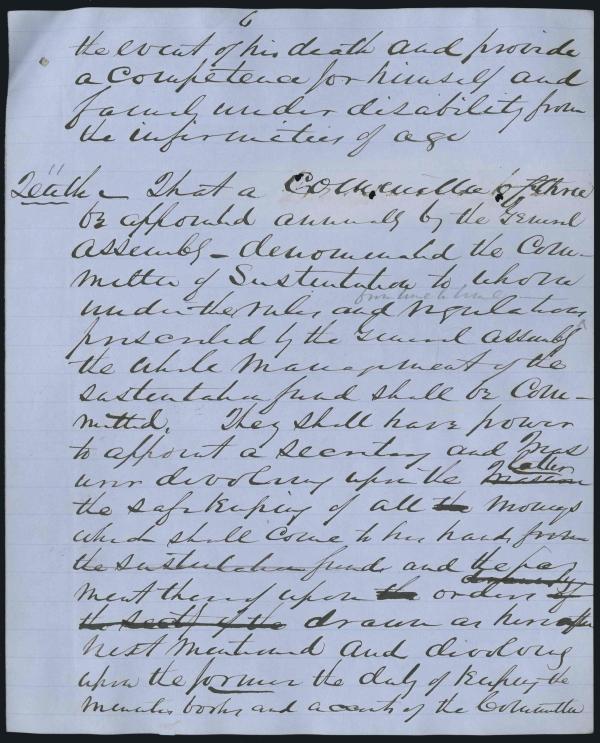 6
the event of his death and provide
a Competence for himself and
family under disability from
the infirmities of age
Tenth - That a Committee of three
be appointed annually by the General
Assembly - denominated the Com-
mittee of Sustentation to whom
from time to time
under the rules and regulations
prescribed by the General Assembly
the whole management of the
sustentation fund shall be Com-
mitted. They shall have power
to appoint a secretary and Treas
urer devolving upon the latter
the safe keeping of all the moneys
which shall come to his hands from
the sustentation funds and the pay
ment thereof upon the orders of
the secty of the drawn as herein after
next mentioned and devolving
upon the former the duty of keeping the
minutes books and accounts of the Committee